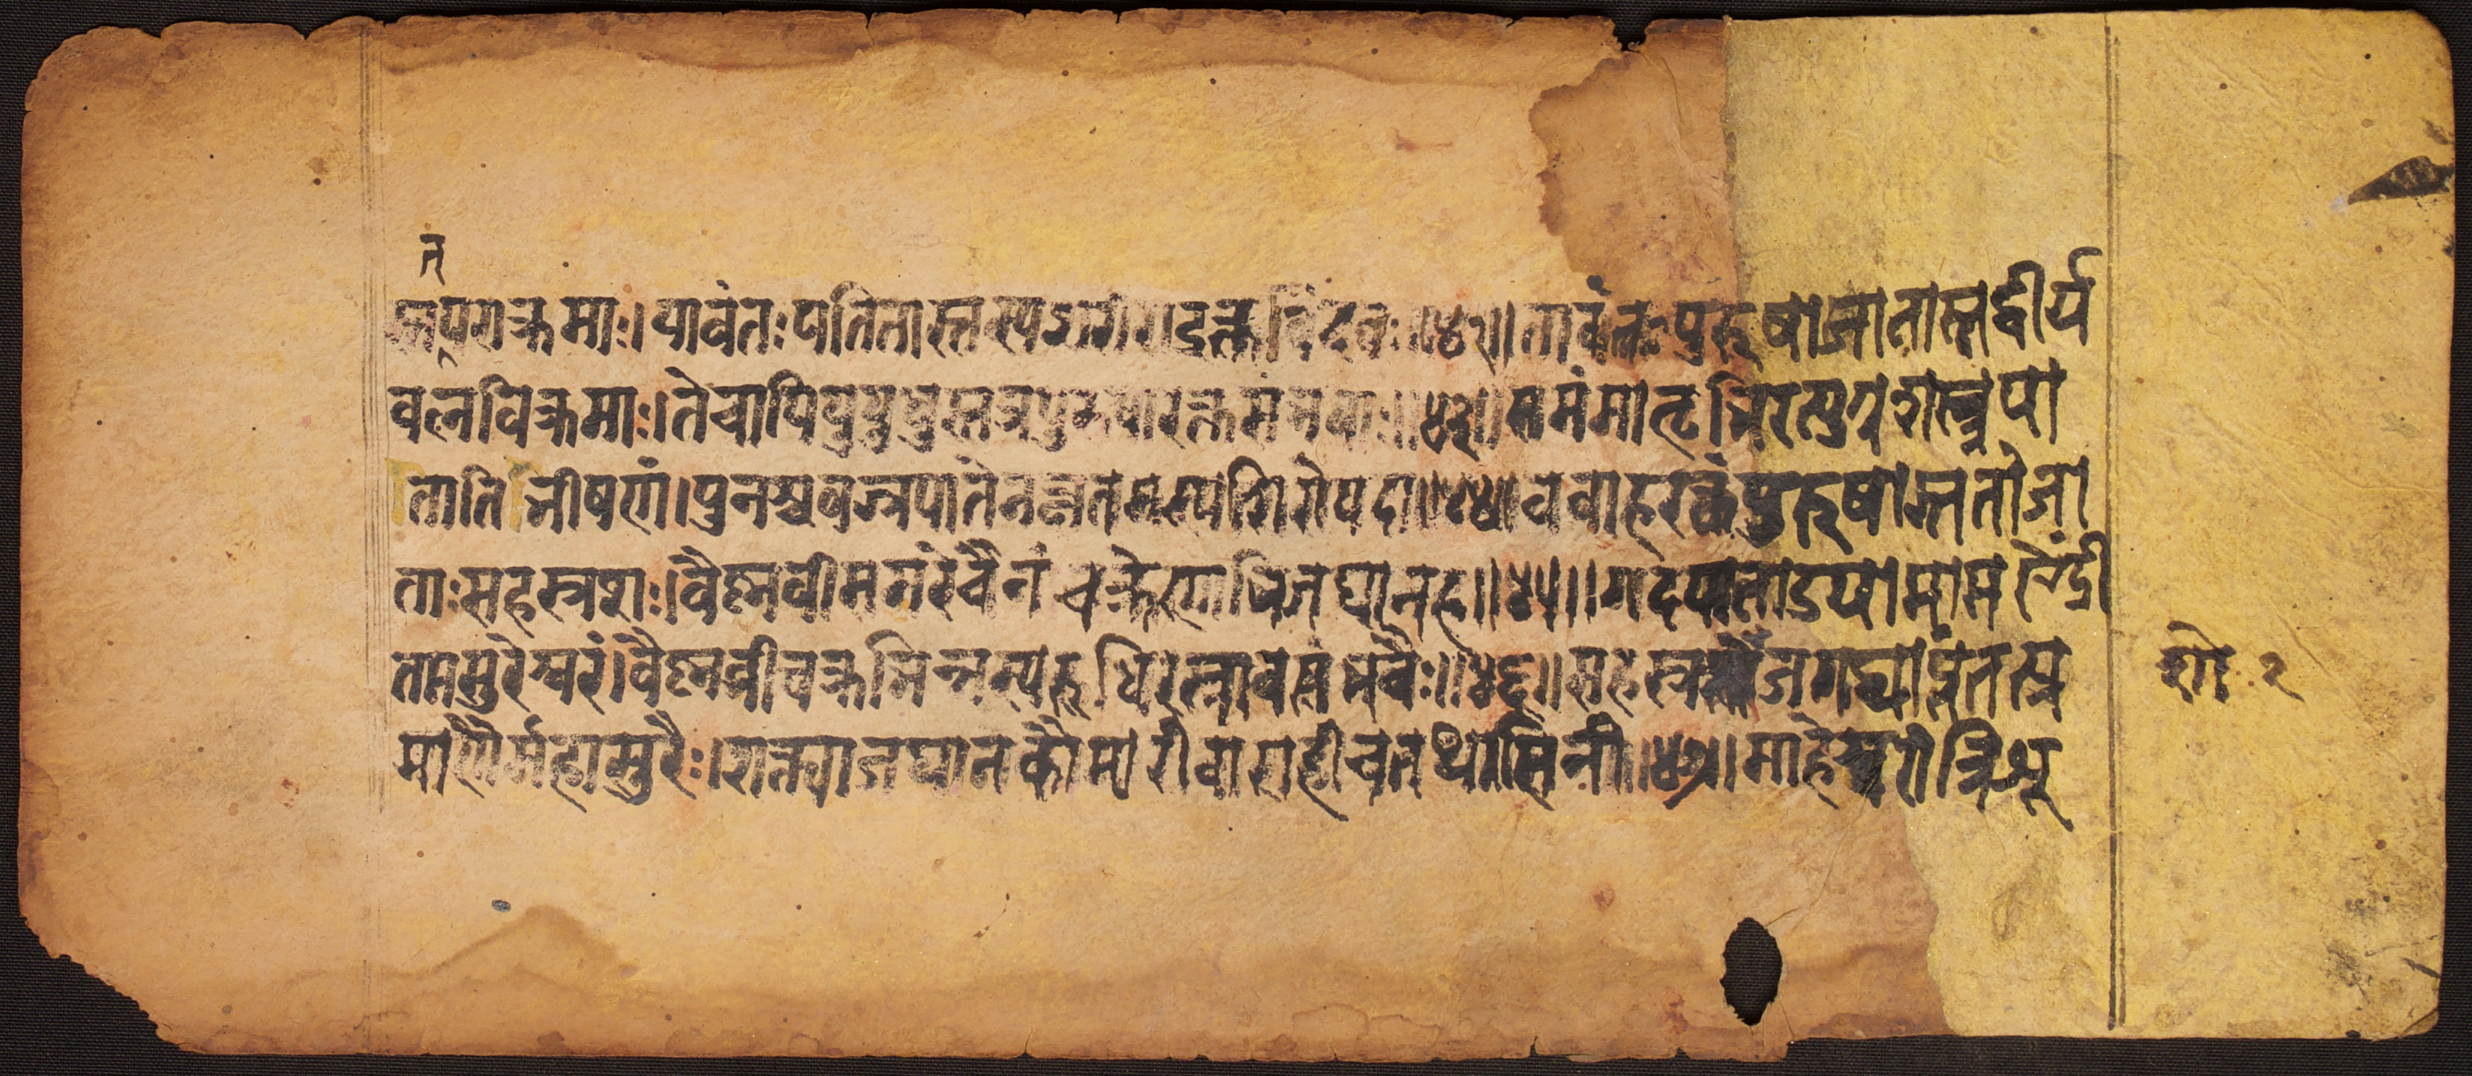 त्
स्तपराक्रमाः।यावंतःपतितास्तस्यशरीराद्रक्तबिंदवः॥४३॥तावंतःपुरुषाजातास्तद्वीर्य
वलविक्रमाः।तेचापियुयुधुस्तत्रपुरुषारक्तसंभवाः॥४४॥समंमातृभिरत्युग्रशस्त्रपा
तातिभीषणं।पुनश्चवज्रपातेनक्षतमस्यशिरोयदा॥४४॥ववाहरक्तंपुरुषास्ततोजा
ताःसहस्रशः।वैष्णवीसमरेचैनंचक्रेणाभिजघानह॥४५॥गदयाताडयामासऐंद्री
तमसुरेश्वरं।वैष्णवीचक्रभिन्नस्यरुधिरस्रावसंभवैः॥४६॥सहस्रशोजगद्व्याप्तंतत्प्र
माणैर्महासुरैः।शक्त्याजघानकौमारीवाराहीचतथासिनी॥४७॥माहेश्वरीत्रिशू
शो २